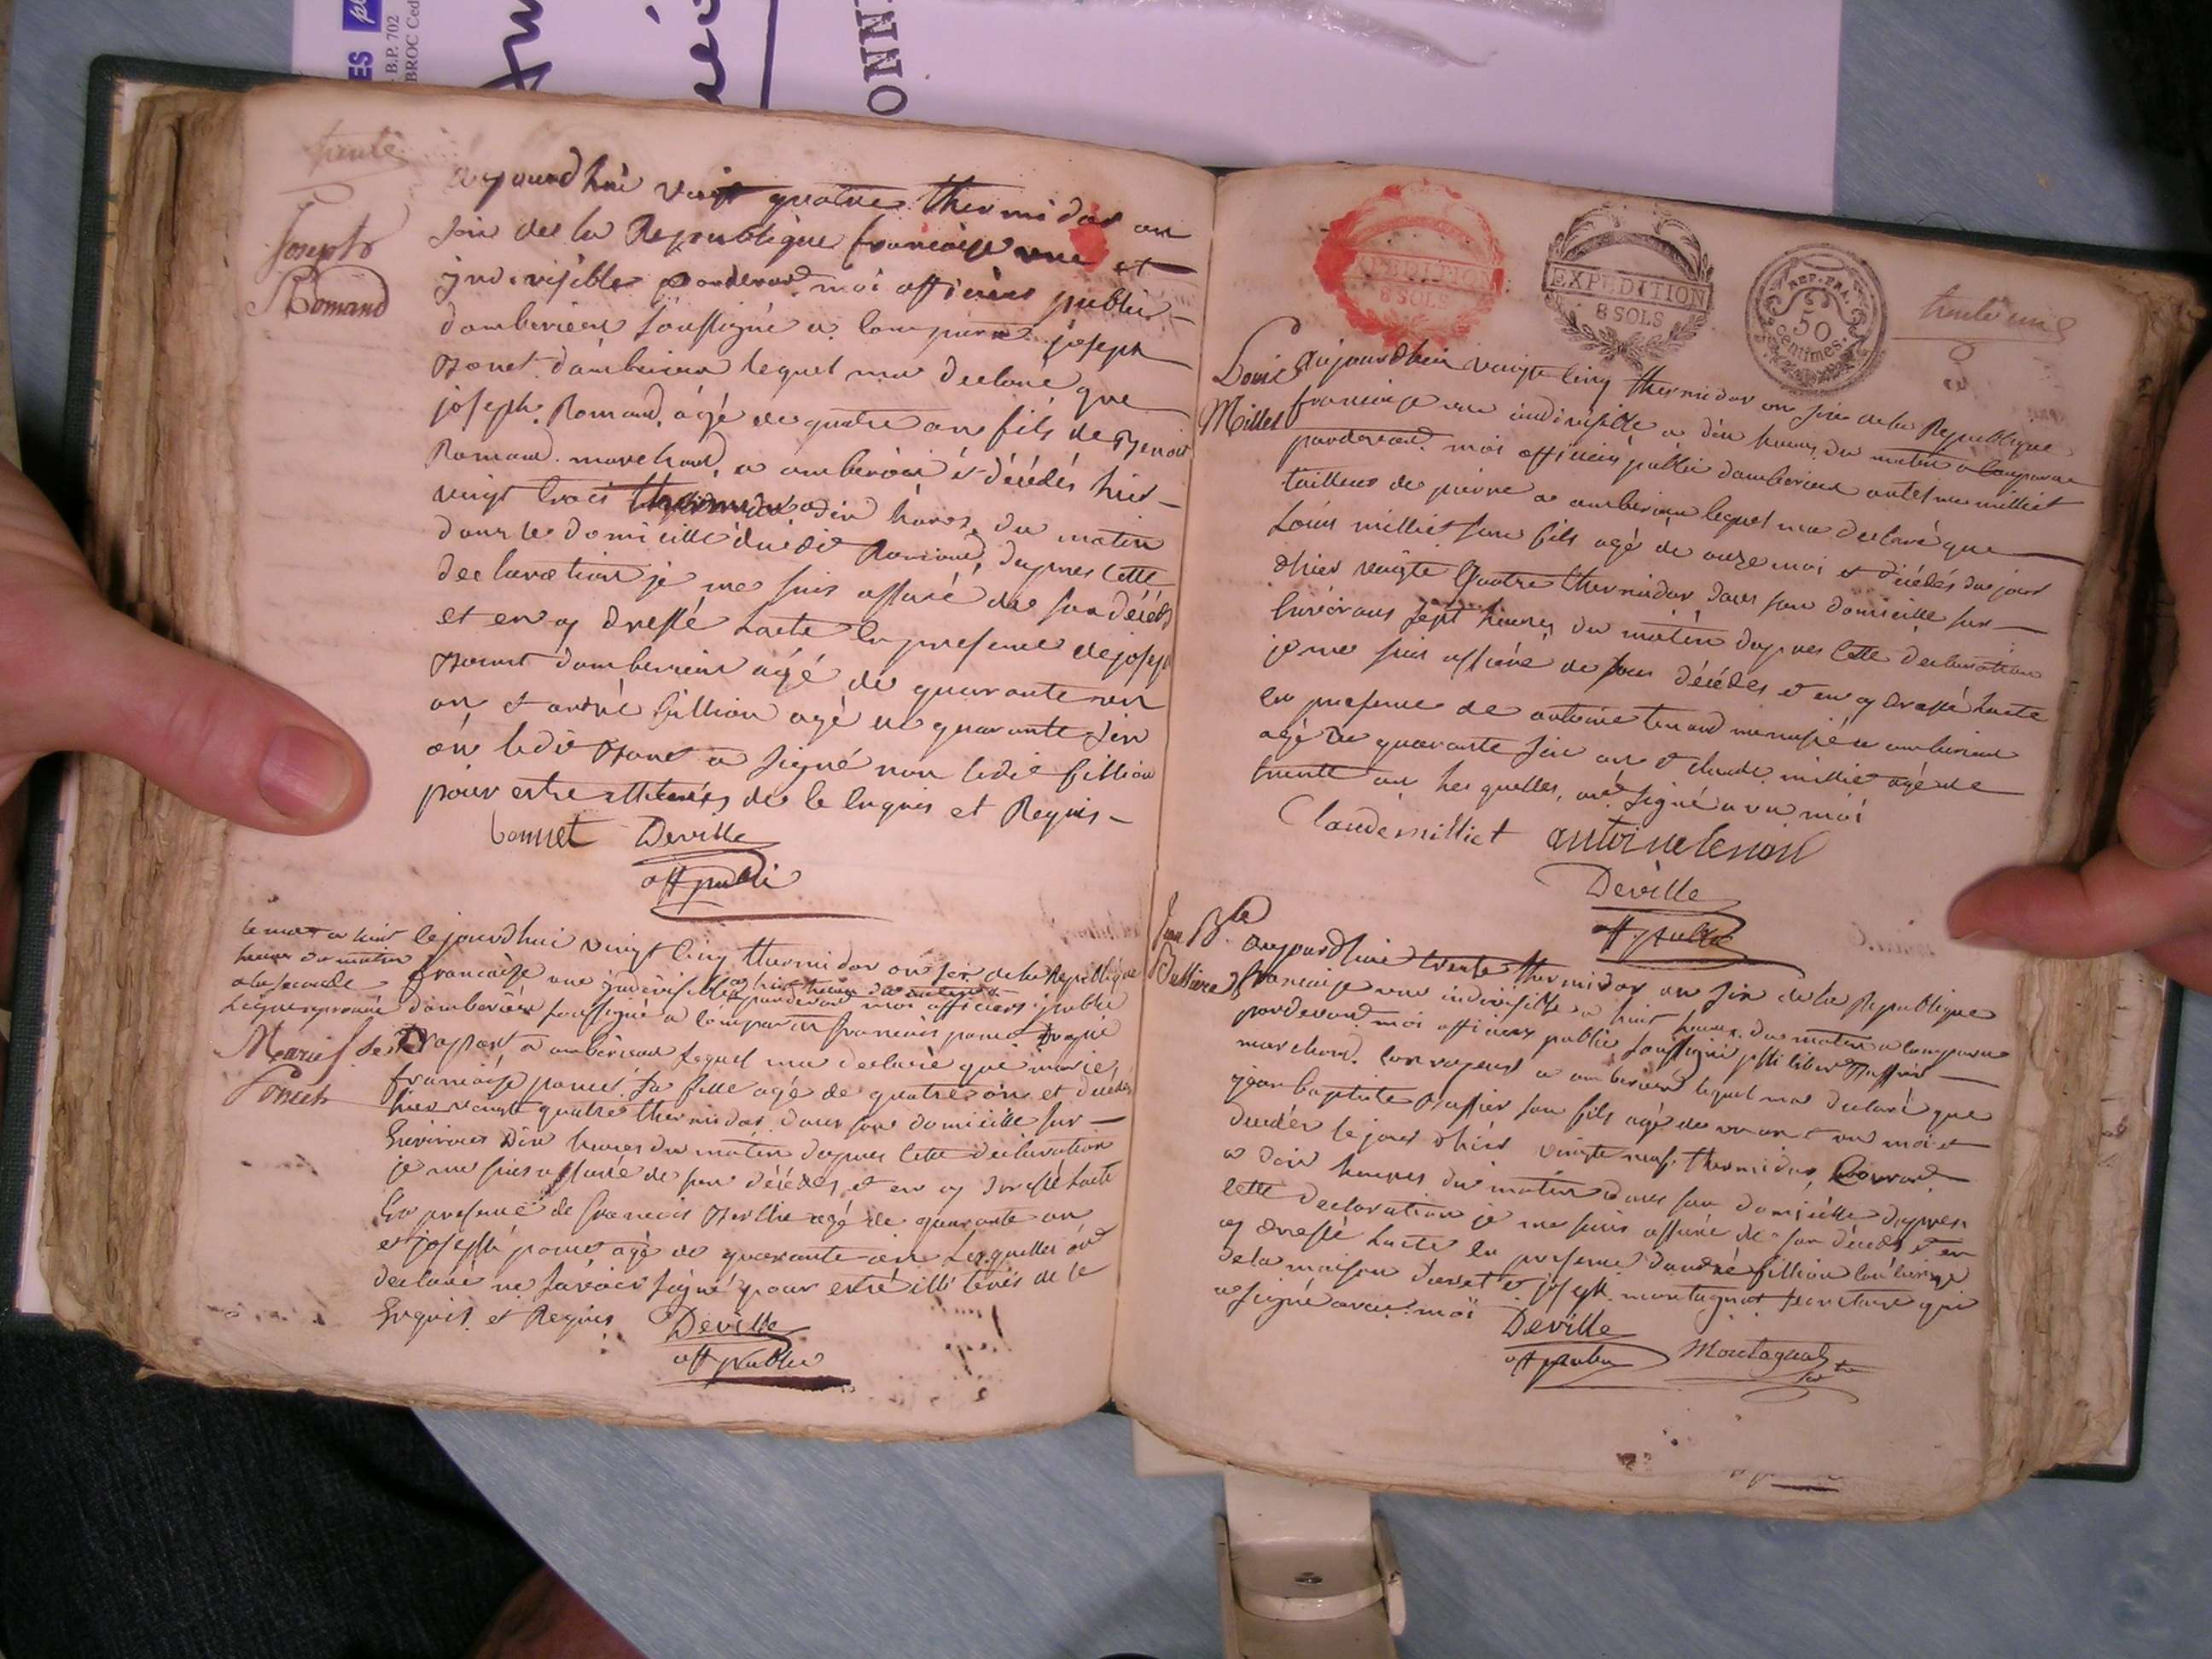 ES
B.P. 702
BROC Ced
ONN
trente
Joseph
Romand
aujourdhui vingt quatre thermidor an
six de la Republique francaise une et
indivisible pardevant moi officier public
damberieux soussigné a comparu joseph
Bonet damberieux lequel ma declaré que
joseph Romand agé de quatre an fils de Benoit
Romand marchand a amberieu et décédés hier
vingt trois thermidor a dix heures du matin
dans le domicille dudit Romand, dapres cette
declaration je me suis assuré de son décéds
et en ay dressé lacte en presence de joseph
Bonnet damberieux agé de quarante un
an et andré fillion agé de quarante six
an ledit Bonet a signé non ledit fillion
pour estre illiterés de ce enquis et Requis
bonnet Deville
off public
le mot a huit
heures du matin
a la seconde
Ligne aprouvé
Marie f.se
Poncet
cejourdhui vingt cinq thermidor an six de la Republique
francaise une indivisible a huit heures du matin
pardevant moi officier public
damberieux soussigné a comparu francois poncet
a amberieux lequel ma declaré que marie
francoise poncet sa fille agé de quatre an et decedés
hier vingt quatre thermidor dans son domicille sur
Environs dix heures du matin dapres cette declaration
je me suis assuré de son décédes et en ay dressé lacte
En presence de francois agé de quarante an
et joseph poncet agé de quarante an Lesquelles ont
declaré ne savoir signé pour estre illiterés de ce
Enquis et Requis Deville
off public
EXPEDITION
8 SOLS
EXPEDITION
8 SOLS
REP. FRA.
50
centimes.
trente une
Louis
Milliet
aujourdhui vingte cinq thermidor an six de la Republique
francaise une indivisible a dix heures du matin a comparu
pardevant moi officier public damberieux antelme milliet
tailleur de pierre a amberieu lequel ma declaré que
Louis milliet son fils agé de onze moi et décédés du jour
dhier vingte quatre thermidor dans son domicille sur
Environs sept heures du matin dapres cette declaration
je me suis assuré de son décédes et en ay dressé lacte
en presence de antoine tenand menusié a amberieux
agé de quarante six an et claude milliet agé de
trente an lesquelles ont signé avec moi
Claude milliet antoine tenan
Deville
off public
Jean B.te
Bussiere
aujourdhui trente thermidor an six de la Republique
francaise une indivisible a huit heures du matin a comparu
pardevant moi officier public soussigné
marchand a amberieux lequel ma declaré que
jean baptiste son fils agé de un an et un moi et
decédés le jour dhier vingte neuf thermidor
a dix heures du matin dans son domicille dapres
cette declaration je me suis assuré de son décéds et en
ay dressé lacte en presence dandré fillion
de la maison et joseph montagnat secretaire qui
a signé avec moi
Deville
off public Montagnat